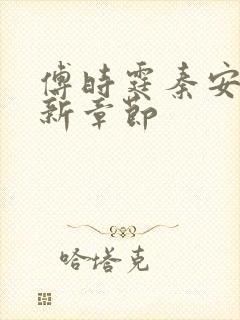 傅时霆秦安
新章节
哈塔克